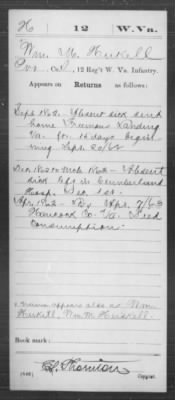 H 12 W. Va.
Wm. M. Huskell
Co. 12 Reg't W. Va. Infantry.
Appears on Returns as follows:
Sept 1862 - Absent sick sent
home Freemans Landing
Va. for 15 days begin
ning Sept. 20/62
Dec. 1862 to Mch. 1863 - Absent
sick left in Cumberland
Hosp. Dec. 1st.
Apr. 1863 - Apr. 7/63
Hancock Co. Va. Died
Consumption.
name appears also as Wm.
Huskell, Wm. M. Huskell.
Book mark:
(546) Copyist.